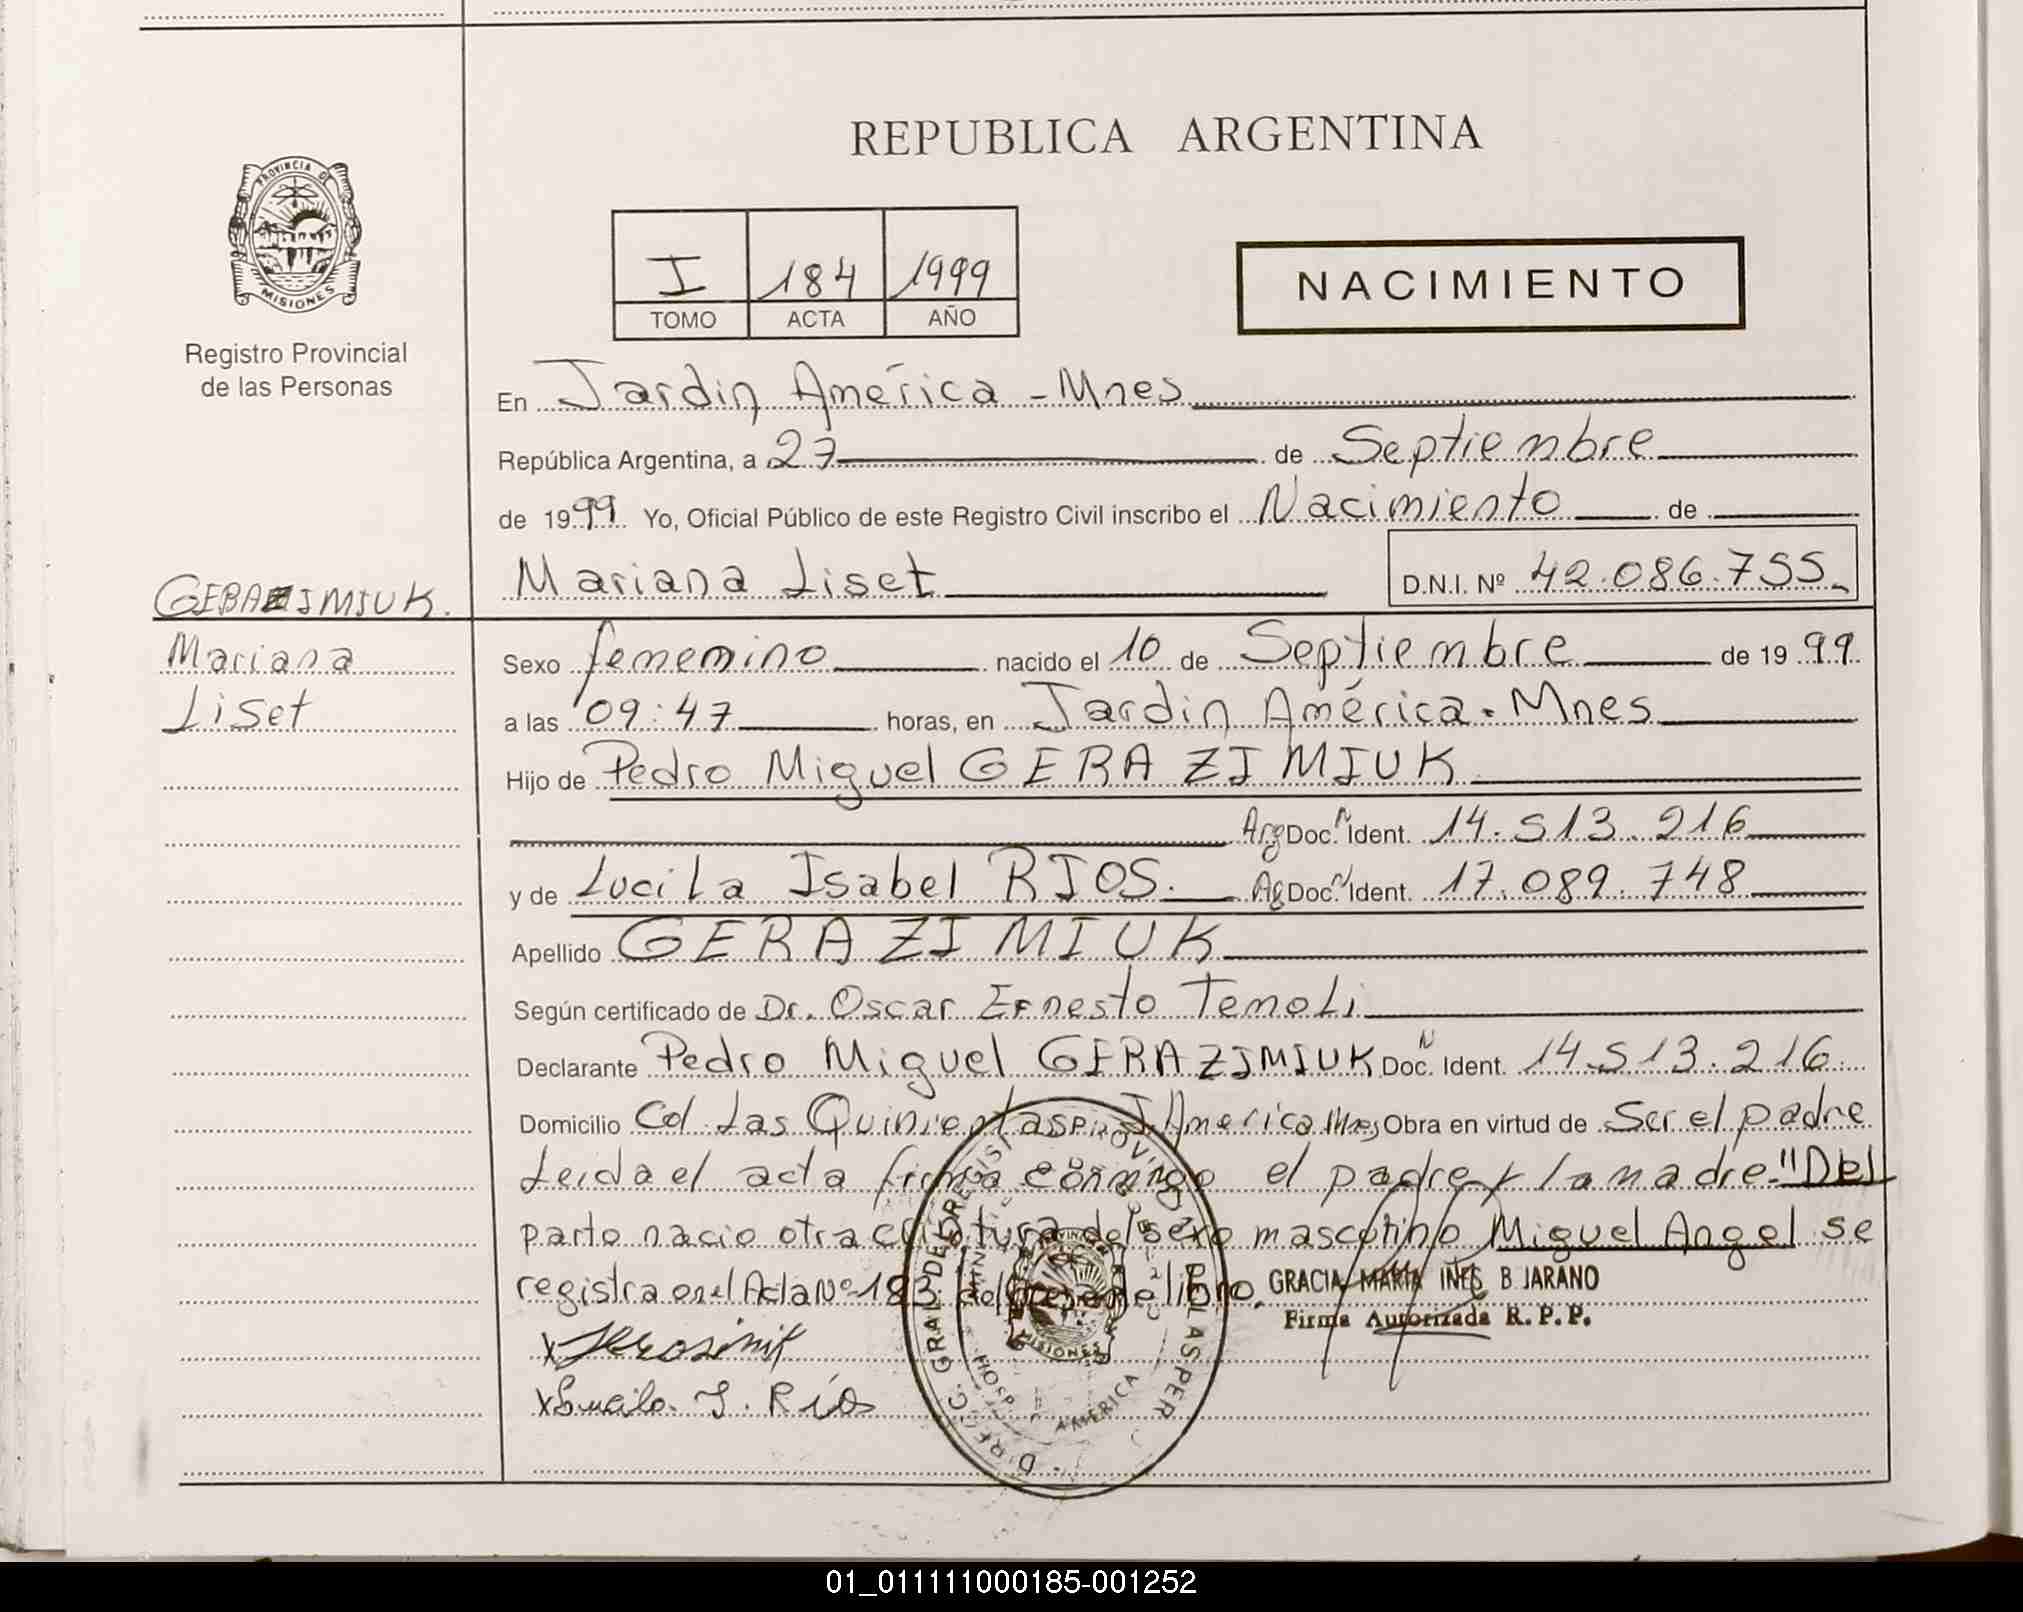 REPUBLICA ARGENTINA
PROVINCIA DE
MISIONES
Registro Provincial
de las Personas
I 184 1999
TOMO ACTA AÑO
NACIMIENTO
En Jardin América - Mnes
República Argentina, a 27 de Septiembre
de 1999 Yo, Oficial Público de este Registro Civil inscribo el Nacimiento de
Mariana Liset D.N.I. Nº 42.086.755
GERAZIMIUK.
Mariana
Liset
Sexo femenino nacido el 10 de Septiembre de 1999
a las 09:47 horas, en Jardin América. Mnes
Hijo de Pedro Miguel GERAZIMIUK
Arg Doc. N Ident. 14.513.216
y de Lucila Isabel RIOS. Ag Doc. N Ident. 17.089.748
Apellido GERAZIMIUK
Según certificado de Dr. Oscar Ernesto Temoli
Declarante Pedro Miguel GERAZIMIUK Doc. N Ident. 14.513.216
Domicilio Col. Las Quinientas J. America Mnes Obra en virtud de Ser el padre
Leida el acta firma conmigo el padre y la madre. "Del
parto nacio otra criatura del sexo masculino Miguel Angel se
registra en el Acta Nº 183 del libro.
GRACIA MARIA INES B JARANO
Firma Autorizada R. P. P.
I. Ríos
AMERICA
MISIONES
01_011111000185-001252